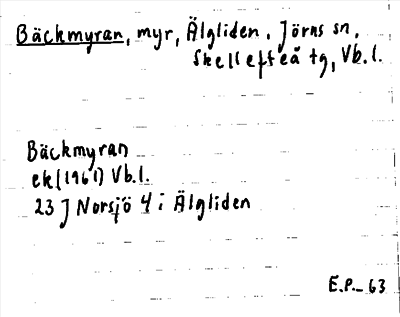 Bäckmyran, myr, Älgliden. Jörns sn,
Skellefteå tg, Vb.l.
Bäckmyran
ek(1961) Vb.l.
23 J Norsjö 4 i Älgliden
E.P._ 63